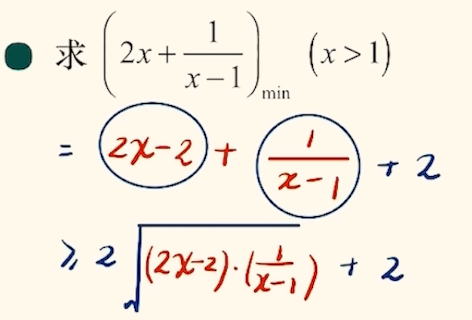 求 (2x + 1/(x−1))min (x>1)
= 2x−2 + 1/(x−1) + 2
≥ 2√((2x−2)·(1/(x−1))) + 2